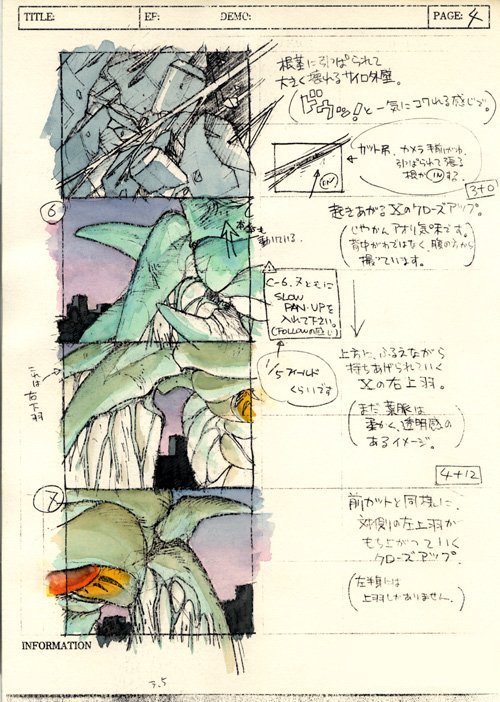 TITLE:
EF:
DEMO:
PAGE: 4
根茎に引っぱられて
大きく壊れるサイロ外壁。
(ドウッ!と一気にコワれる感じで。)
カット尻、カメラ手前から
引っぱられて張る
根が INする。
IN
3+0
6
起きあがるXのクローズアップ。
(じゃっかんアオリ気味です。
背中がわではなく腹の方から
撮っています。)
動いている。
C-6.7ともに
SLOW
PAN・UPを
入れて下さい。
(FOLLOWの感じ)
1/5フィールド
くらいです
これは右下羽
上方に、ふるえながら
持ちあげられていく
Xの右上羽。
(まだ葉脈は
柔かく、透明感の
あるイメージ。)
4+12
7
前カットと同様に、
対側の左上羽が
もち上がっていく
クローズアップ。
(左半身には
上羽しかありません。)
INFORMATION
3.5